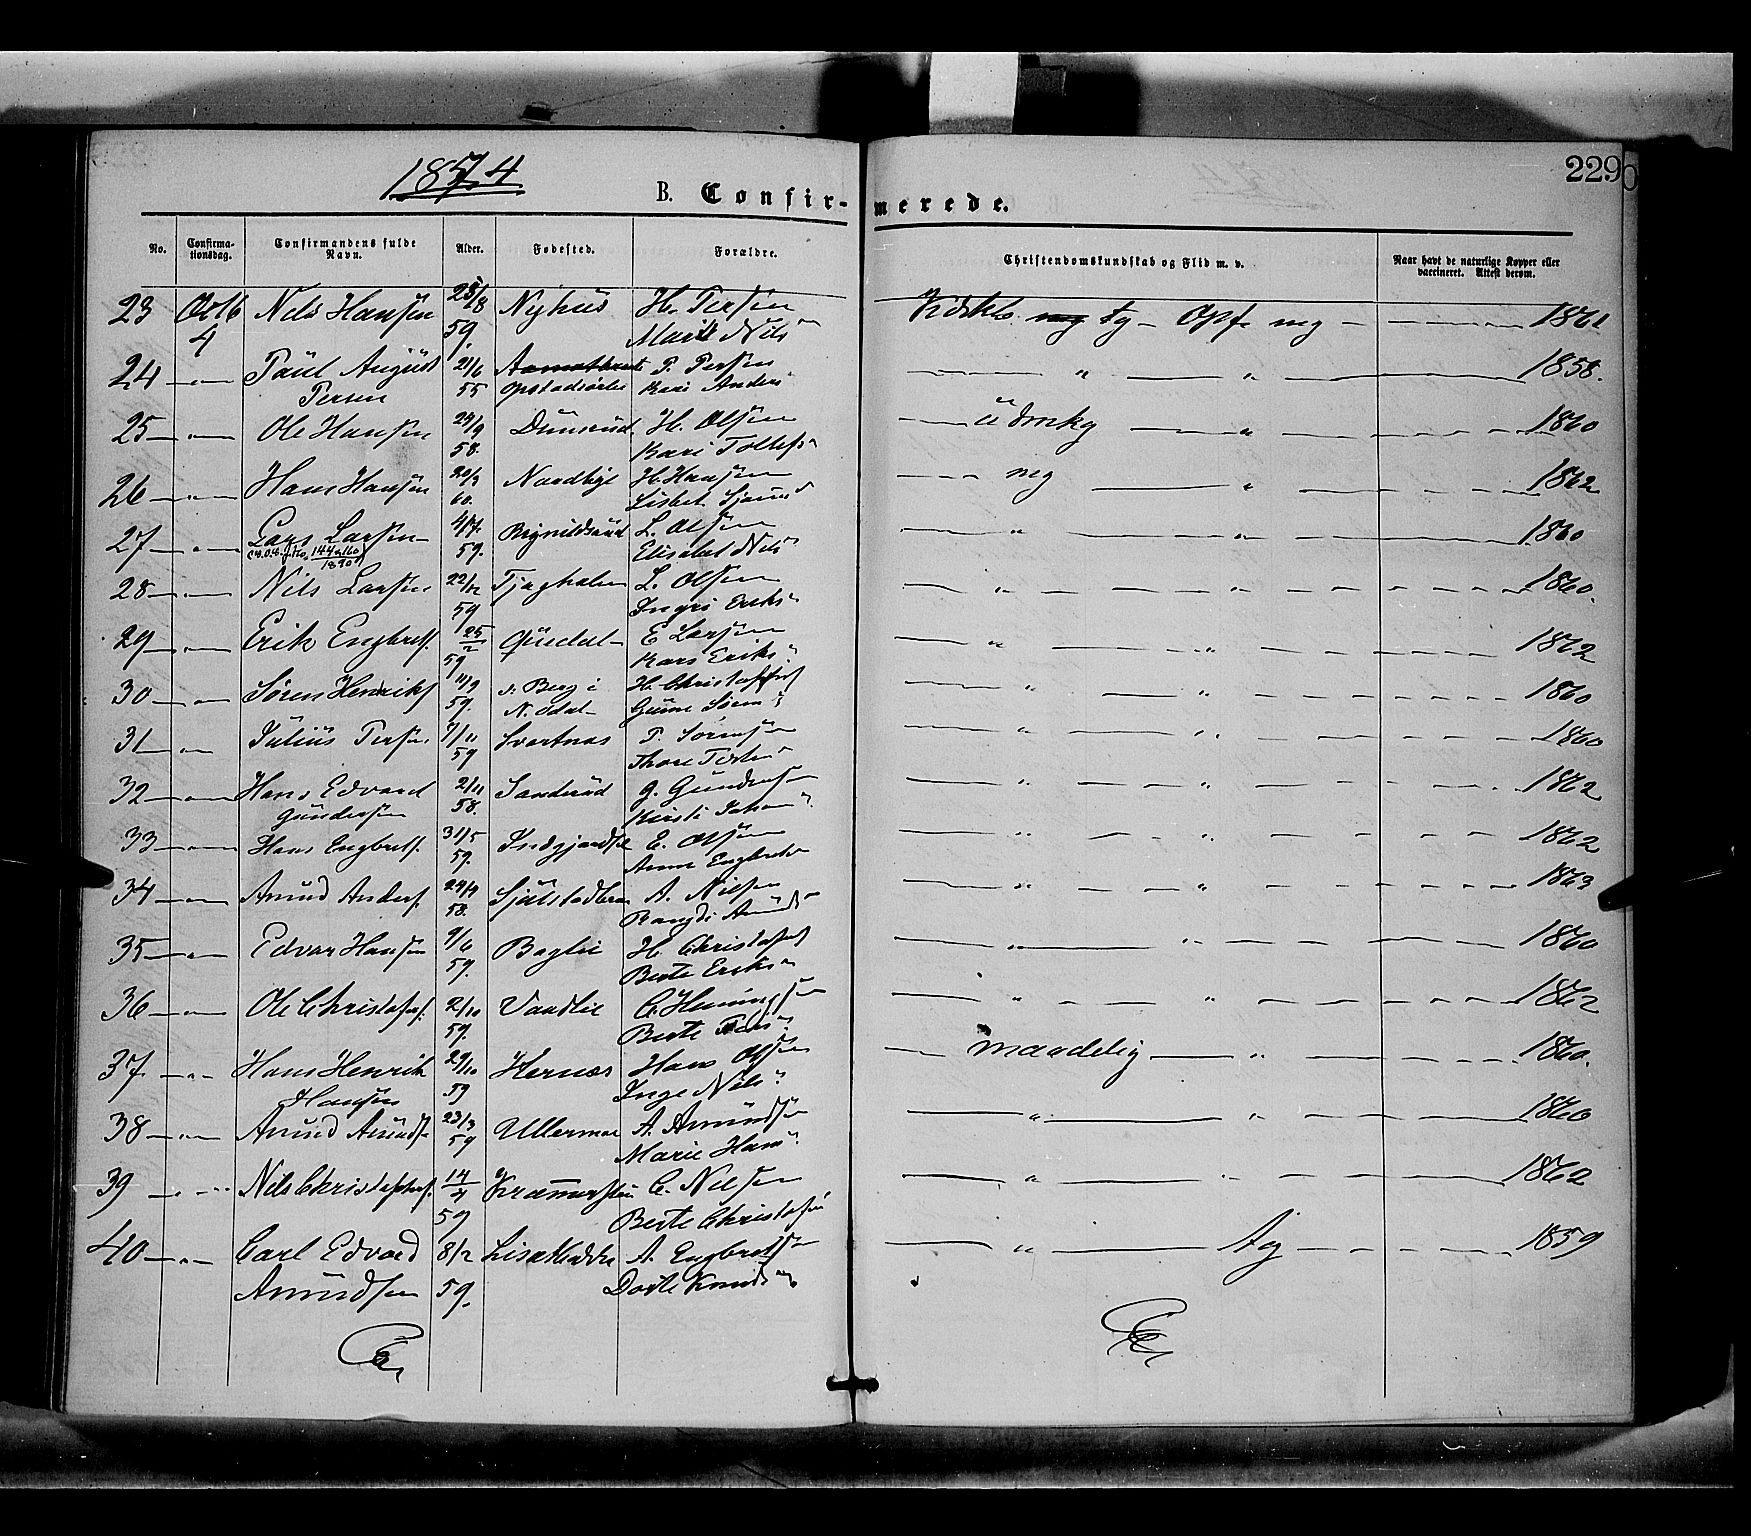 1874
B. Confirmerede.
229
No. Confirmationsdag. Confirmandens fulde Navn. Alder. Fødested. Forældre. Christendomskundskab og Flid m. v. Naar havt de naturlige Kopper eller vaccineret. Attest derom.
23 Octb 4 Nils Hansen 28/8 59. Nyhus H. Persen Marit Nils" mg tg - Opf. mg - 1861
24 —"— Paul August Persen 21/6 55 P. Persen Kari Anders " " 1858.
25 —"— Ole Hansen 24/9 58. H. Olsen Kari Tollefs" " 1860
26 —"— Hans Hansen 20/3 60. Nordbye H. Hansen Lisbet mg " 1862
27 —"— Lars Larsen 4/7. 59. L. Olsen Elisabet Nils " " 1860
28 —"— Nils Larsen 22/12 59 L. Olsen Ingri Eriks" " " 1860.
29 —"— Erik Engbrets. 25/2 59 E Larsen Kari Eriks" " " 1862
30 —"— Søren Henriks 11/9 59. v. Berg i N. Odal H. Christoffers Gunne Søren" " " 1860
31 —"— Julius Persen 7/11 59 Svartnas P. Sørensen " " 1860
32 —"— Hans Edvard Gundersen 2/11 58. Sanderud G. Gundersen Kirsti Johan" " " 1862
33 —"— Hans Engbrets. 31/5 59. E. Olsen Anne Engbrets " " 1862
34 —"— Amund Anders. 24/4 58. A. Nilsen Rangdi Amunds " " 1863
35 —"— Edvar Hansen 9/6 59. Baglie H. Christofers Berte Eriks" " " 1860
36 —"— Ole Christofers. 2/10 59. Vaadlie C. Henningsen Berte " " 1862
37 —"— Hans Henrik Hansen 29/10 59 Hernæs Hans Olsen Inge Nils" maadelig " 1860.
38 —"— Amund Amunds. 23/3 59 Ullermoe A. Amundsen Marie Hans" " " 1860
39 —"— Nils Christoffers. 14/4 59 C. Nilsen Berte Christofer " " 1862
40 —"— Carl Edvard Amundsen 8/2 59. A. Engbretsen Dorte Knuds" " tg 1859